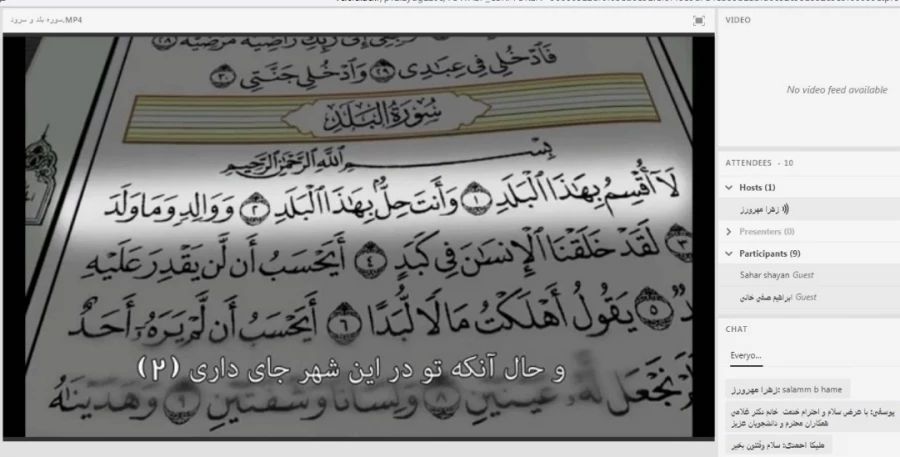 سوره بلد و سرود.MP4
فَٱدْخُلِى فِى عِبَٰدِى ٢٩ وَٱدْخُلِى جَنَّتِى ٣٠
سُورَةُ البَلَدِ
بِسْمِ ٱللَّهِ ٱلرَّحْمَٰنِ ٱلرَّحِيمِ
لَآ أُقْسِمُ بِهَٰذَا ٱلْبَلَدِ ١ وَأَنتَ حِلٌّۢ بِهَٰذَا ٱلْبَلَدِ ٢ وَوَالِدٍ وَمَا وَلَدَ
٣ لَقَدْ خَلَقْنَا ٱلْإِنسَٰنَ فِى كَبَدٍ ٤ أَيَحْسَبُ أَن لَّن يَقْدِرَ عَلَيْهِ
٥ يَقُولُ أَهْلَكْتُ مَالًا لُّبَدًا ٦ أَيَحْسَبُ أَن لَّمْ يَرَهُۥٓ أَحَدٌ
و حال آنکه تو در این شهر جای داری (۲)
نَجْعَل لَّهُۥ عَيْنَيْنِ ٨ وَلِسَانًا وَشَفَتَيْنِ ٩ وَهَدَيْنَٰهُ
VIDEO
No video feed available
ATTENDEES - 10
Hosts (1)
زهرا مهرورز
Presenters (0)
Participants (9)
Sahar shayan Guest
ابراهیم صفی خانی Guest
CHAT
Everyo...
زهرا مهرورز: salamm b hame
یوسفی: با عرض سلام و احترام خدمت خانم دکتر غلامی
همکاران محترم و دانشجویان عزیز
ملیکا احمدی: سلام وقتتون بخیر